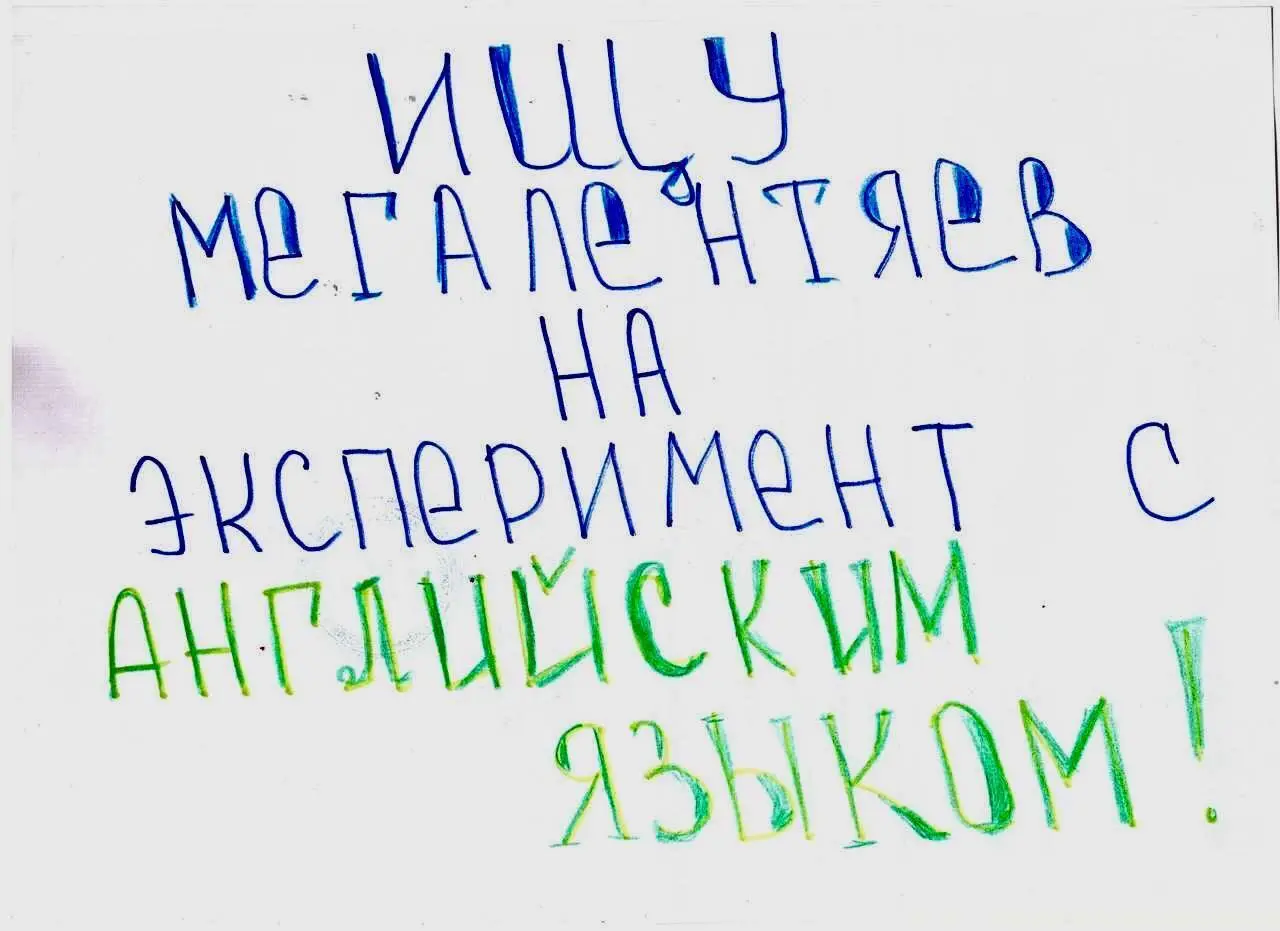 ИЩУ
МЕГАЛЕНТЯЕВ
НА
ЭКСПЕРИМЕНТ С
АНГЛИЙСКИМ
ЯЗЫКОМ!